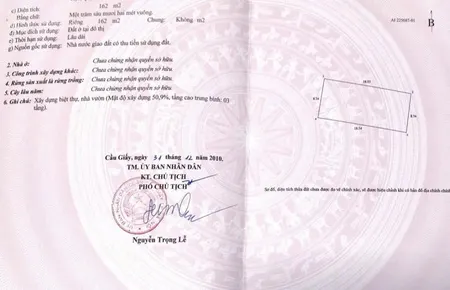 c) Diện tích: 162 m2
Bằng chữ: Một trăm sáu mươi hai mét vuông.
d) Hình thức sử dụng: Riêng: 162 m2 Chung: Không m2
đ) Mục đích sử dụng: Đất ở tại đô thị
e) Thời hạn sử dụng: Lâu dài
g) Nguồn gốc sử dụng: Nhà nước giao đất có thu tiền sử dụng đất.
2. Nhà ở: Chưa chứng nhận quyền sở hữu.
3. Công trình xây dựng khác: Chưa chứng nhận quyền sở hữu.
4. Rừng sản xuất là rừng trồng: Chưa chứng nhận quyền sở hữu.
5. Cây lâu năm: Chưa chứng nhận quyền sở hữu.
6. Ghi chú: Xây dựng biệt thự, nhà vườn (Mật độ xây dựng 50,9%, tầng cao trung bình: 03
tầng).
Cầu Giấy, ngày 31 tháng 12 năm 2010.
TM. ỦY BAN NHÂN DÂN
KT. CHỦ TỊCH
PHÓ CHỦ TỊCH
Nguyễn Trọng Lễ
B
Sơ đồ, diện tích thửa đất chưa được đo vẽ chính xác, sẽ được điều chỉnh khi có bản đồ địa chính chính